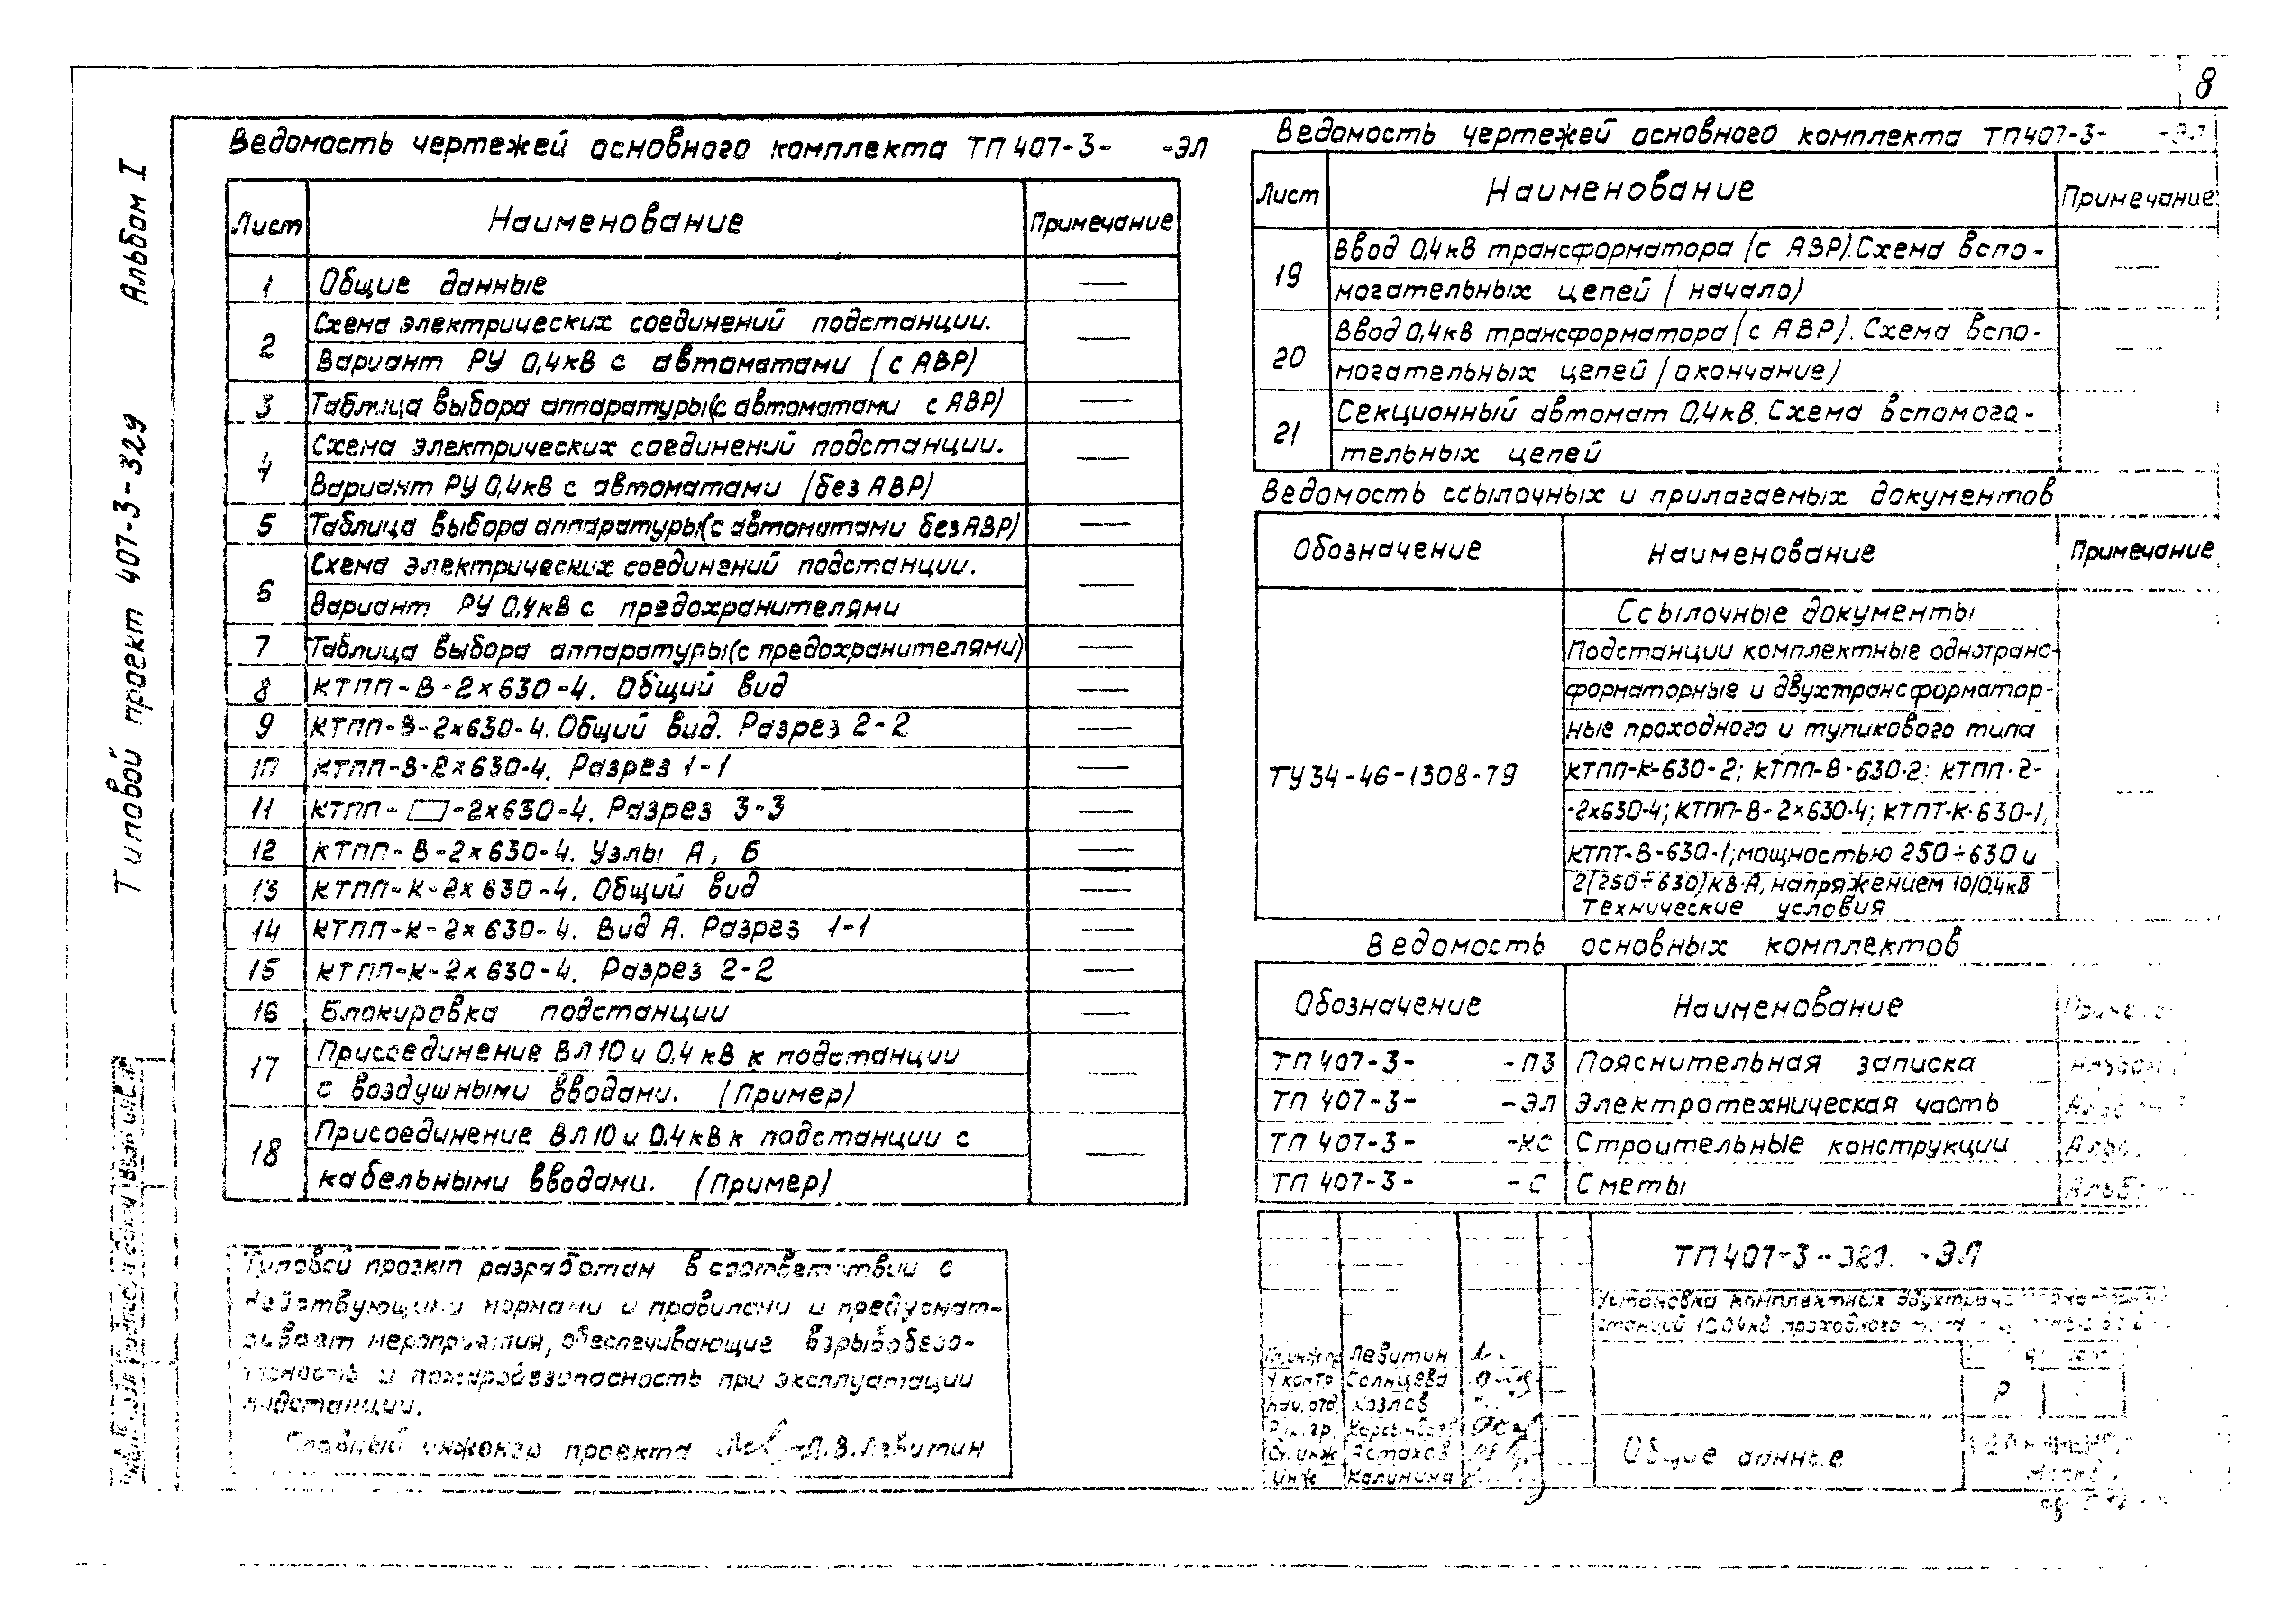 8
Альбом I
Типовой проект 407-3-329
Ведомость чертежей основного комплекта ТП 407-3- -ЭЛ
Лист Наименование Примечание
1 Общие данные —
2 Схема электрических соединений подстанции. —
Вариант РУ 0,4кВ с автоматами (с АВР)
3 Таблица выбора аппаратуры(с автоматами с АВР) —
4 Схема электрических соединений подстанции. —
Вариант РУ 0,4кВ с автоматами (без АВР)
5 Таблица выбора аппаратуры(с автоматами без АВР) —
6 Схема электрических соединений подстанции. —
Вариант РУ 0,4кВ с предохранителями
7 Таблица выбора аппаратуры(с предохранителями) —
8 КТПП-В-2×630-4. Общий вид —
9 КТПП-В-2×630-4. Общий вид. Разрез 2-2 —
10 КТПП-В-2×630-4. Разрез 1-1 —
11 КТПП-▭-2×630-4. Разрез 3-3 —
12 КТПП-В-2×630-4. Узлы А, Б —
13 КТПП-К-2×630-4. Общий вид —
14 КТПП-К-2×630-4. Вид А. Разрез 1-1 —
15 КТПП-К-2×630-4. Разрез 2-2 —
16 Блокировка подстанции —
17 Присоединение ВЛ10 и 0,4 кВ к подстанции —
с воздушными вводами. (Пример)
18 Присоединение ВЛ10 и 0,4кВ к подстанции с —
кабельными вводами. (Пример)
Типовой проект разработан в соответствии с
действующими нормами и правилами и предусмат-
ривает мероприятия, обеспечивающие взрывобезо-
пасность и пожаробезопасность при эксплуатации
подстанции.
Главный инженер проекта Л.В.Левитин
Ведомость чертежей основного комплекта ТП407-3- -ЭЛ
Лист Наименование Примечание
19 Ввод 0,4кВ трансформатора (с АВР). Схема вспо- —
могательных цепей (начало)
20 Ввод 0,4кВ трансформатора (с АВР). Схема вспо- —
могательных цепей (окончание)
21 Секционный автомат 0,4кВ. Схема вспомога-
тельных цепей
Ведомость ссылочных и прилагаемых документов
Обозначение Наименование Примечание
Ссылочные документы
ТУ34-46-1308-79 Подстанции комплектные однотранс- —
форматорные и двухтрансформатор-
ные проходного и тупикового типа
КТПП-К-630-2; КТПП-В-630-2; КТПП-2-
-2×630-4; КТПП-В-2×630-4; КТПТ-К-630-1,
КТПТ-В-630-1; мощностью 250÷630 и
2(250÷630)кВ·А, напряжением 10/0,4кВ
Технические условия
Ведомость основных комплектов
Обозначение Наименование
ТП 407-3- -ПЗ Пояснительная записка
ТП 407-3- -ЭЛ Электротехническая часть
ТП 407-3- -КС Строительные конструкции
ТП 407-3- -С Сметы
ТП 407-3-329. -ЭЛ
Установка комплектных
проходного
Левитин
Н контр Солнцева
Нач. отд. Козлов
Рук. гр.
Ст. инж Астахов
Инж Калинина
Р
Общие данные